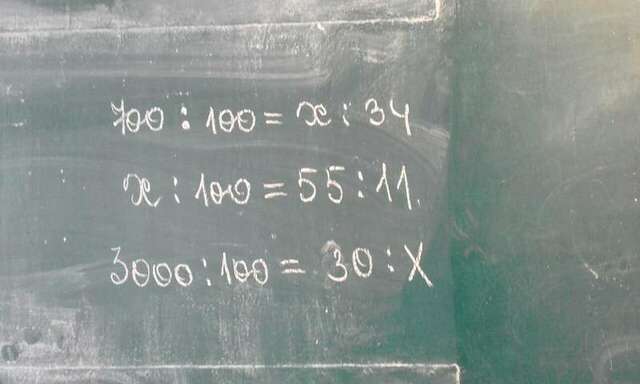 700 : 100 = x : 34
x : 100 = 55 : 11
3000 : 100 = 30 : X